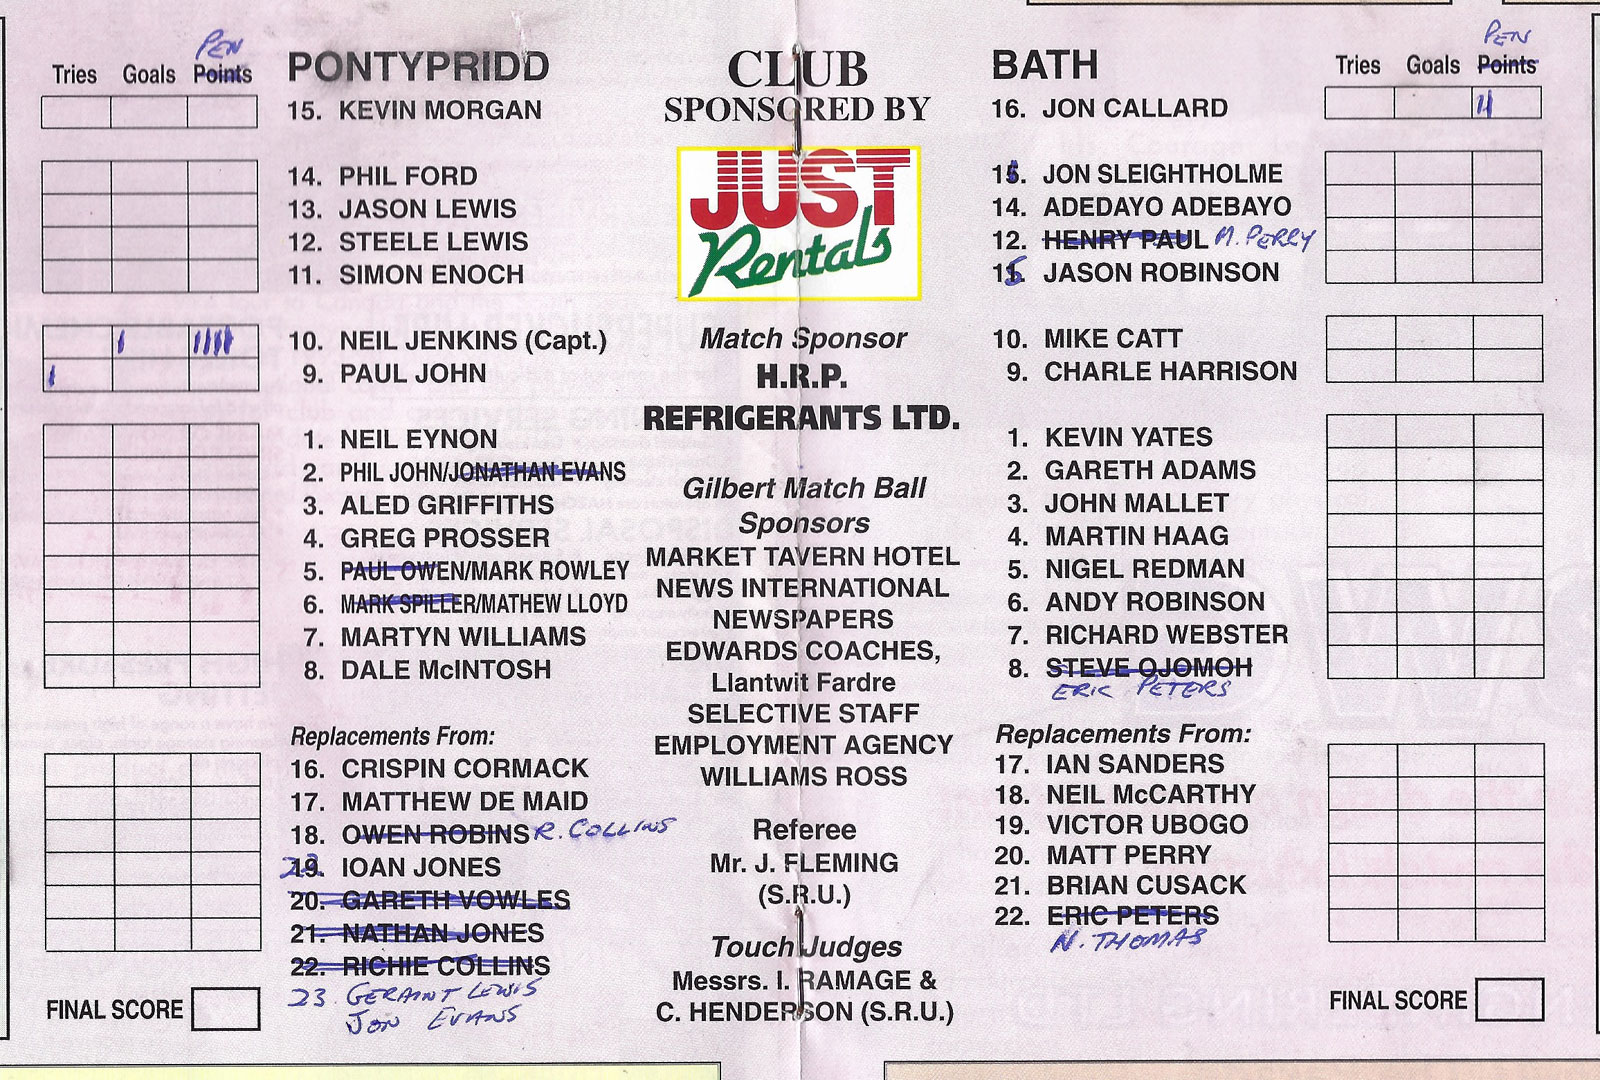 PEN
Tries Goals Points
PONTYPRIDD
15. KEVIN MORGAN
14. PHIL FORD
13. JASON LEWIS
12. STEELE LEWIS
11. SIMON ENOCH
10. NEIL JENKINS (Capt.)
9. PAUL JOHN
1. NEIL EYNON
2. PHIL JOHN/JONATHAN EVANS
3. ALED GRIFFITHS
4. GREG PROSSER
5. PAUL OWEN/MARK ROWLEY
6. MARK SPILLER/MATHEW LLOYD
7. MARTYN WILLIAMS
8. DALE McINTOSH
Replacements From:
16. CRISPIN CORMACK
17. MATTHEW DE MAID
18. OWEN ROBINS R. COLLINS
22 19. IOAN JONES
20. GARETH VOWLES
21. NATHAN JONES
22. RICHIE COLLINS
23. GERAINT LEWIS
JON EVANS
FINAL SCORE
CLUB
SPONSORED BY
JUST
Rentals
Match Sponsor
H.R.P.
REFRIGERANTS LTD.
Gilbert Match Ball
Sponsors
MARKET TAVERN HOTEL
NEWS INTERNATIONAL
NEWSPAPERS
EDWARDS COACHES,
Llantwit Fardre
SELECTIVE STAFF
EMPLOYMENT AGENCY
WILLIAMS ROSS
Referee
Mr. J. FLEMING
(S.R.U.)
Touch Judges
Messrs. I. RAMAGE &
C. HENDERSON (S.R.U.)
BATH
PEN
Tries Goals Points
16. JON CALLARD
15. JON SLEIGHTHOLME
14. ADEDAYO ADEBAYO
12. HENRY PAUL M. PERRY
11. JASON ROBINSON
10. MIKE CATT
9. CHARLE HARRISON
1. KEVIN YATES
2. GARETH ADAMS
3. JOHN MALLET
4. MARTIN HAAG
5. NIGEL REDMAN
6. ANDY ROBINSON
7. RICHARD WEBSTER
8. STEVE OJOMOH
ERIC PETERS
Replacements From:
17. IAN SANDERS
18. NEIL McCARTHY
19. VICTOR UBOGO
20. MATT PERRY
21. BRIAN CUSACK
22. ERIC PETERS
N. THOMAS
FINAL SCORE